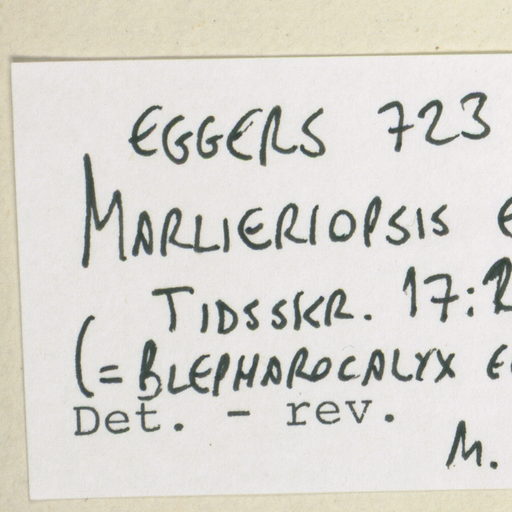 EGGERS 723
MARLIERIOPSIS
TIDSSKR. 17:2
(= BLEPHAROCALYX
Det. - rev.
M.